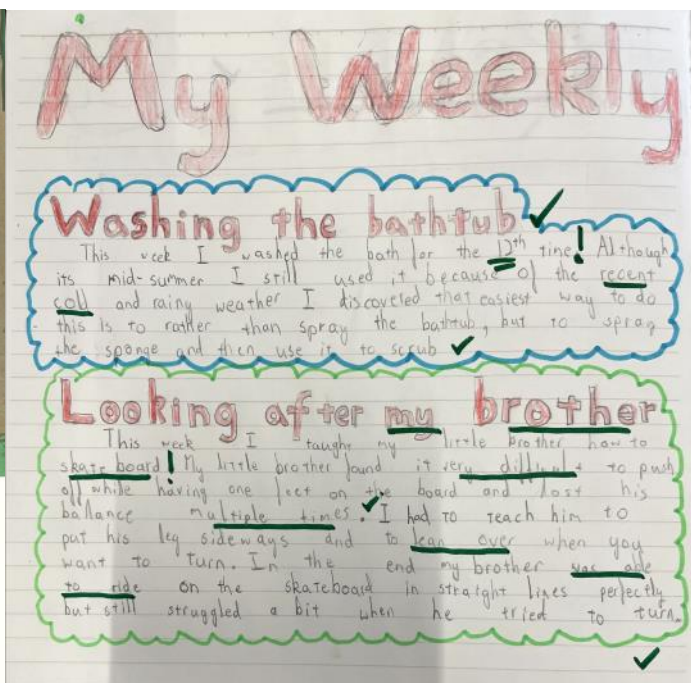 My Weekly
Washing the bathtub
This week I washed the bath for the 12th time! Although
its mid-summer I still used it because of the recent
cold and rainy weather I discovered that easiest way to do
this is to rather than spray the bathtub, but to spray
the sponge and then use it to scrub
Looking after my brother
This week I taught my little brother how to
skate board! My little brother found it very difficult to push
off while having one feet on the board and lost his
ballance multiple times. I had to teach him to
put his leg sideways and to lean over when you
want to turn. In the end my brother was able
to ride on the skateboard in straight lines perfectly
but still struggled a bit when he tried to turn.